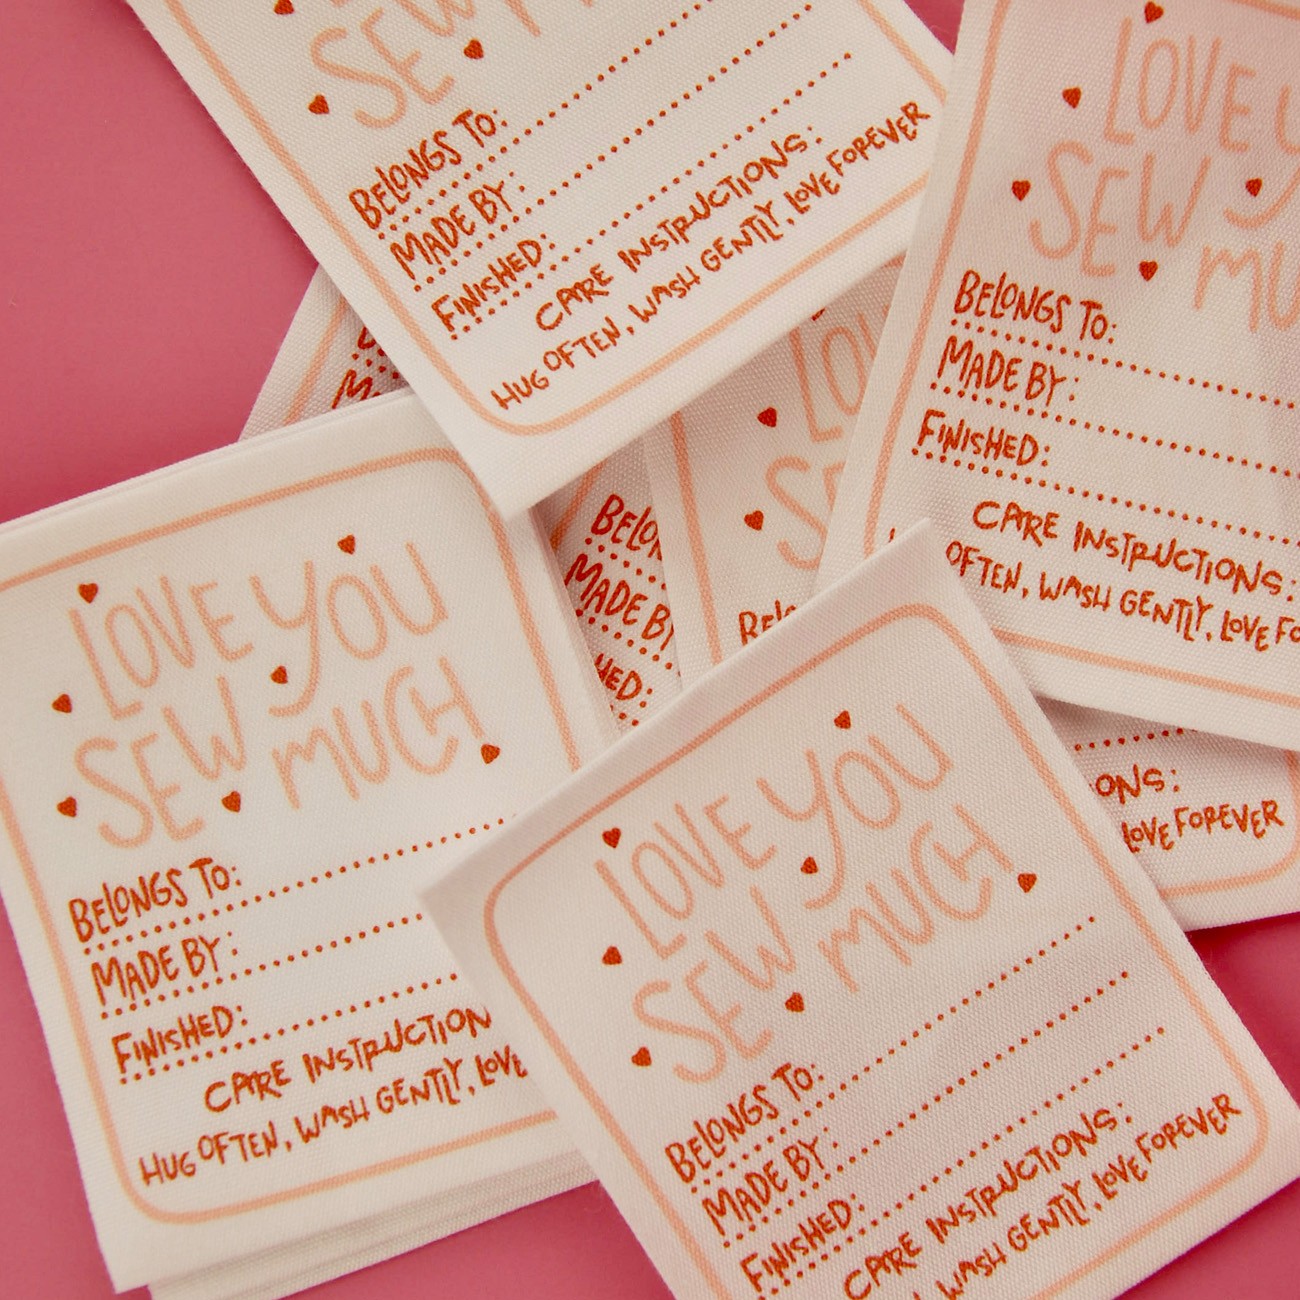 SEW
BELONGS TO:
MADE BY:
FINISHED:
CARE INSTRUCTIONS:
HUG OFTEN, WASH GENTLY, LOVE FOREVER
LOVE
SEW
BELONGS TO:
MADE BY:
FINISHED:
CARE INSTRUCTIONS:
OFTEN, WASH GENTLY, LOVE
MADE BY
HED:
ONS:
LOVE FOREVER
LOVE YOU
SEW MUCH
BELONGS TO:
MADE BY:
FINISHED:
CARE INSTRUCTION
HUG OFTEN, WASH GENTLY, LOVE
LOVE YOU
SEW MUCH
BELONGS TO:
MADE BY:
FINISHED:
CARE INSTRUCTIONS:
WASH GENTLY, LOVE FOREVER